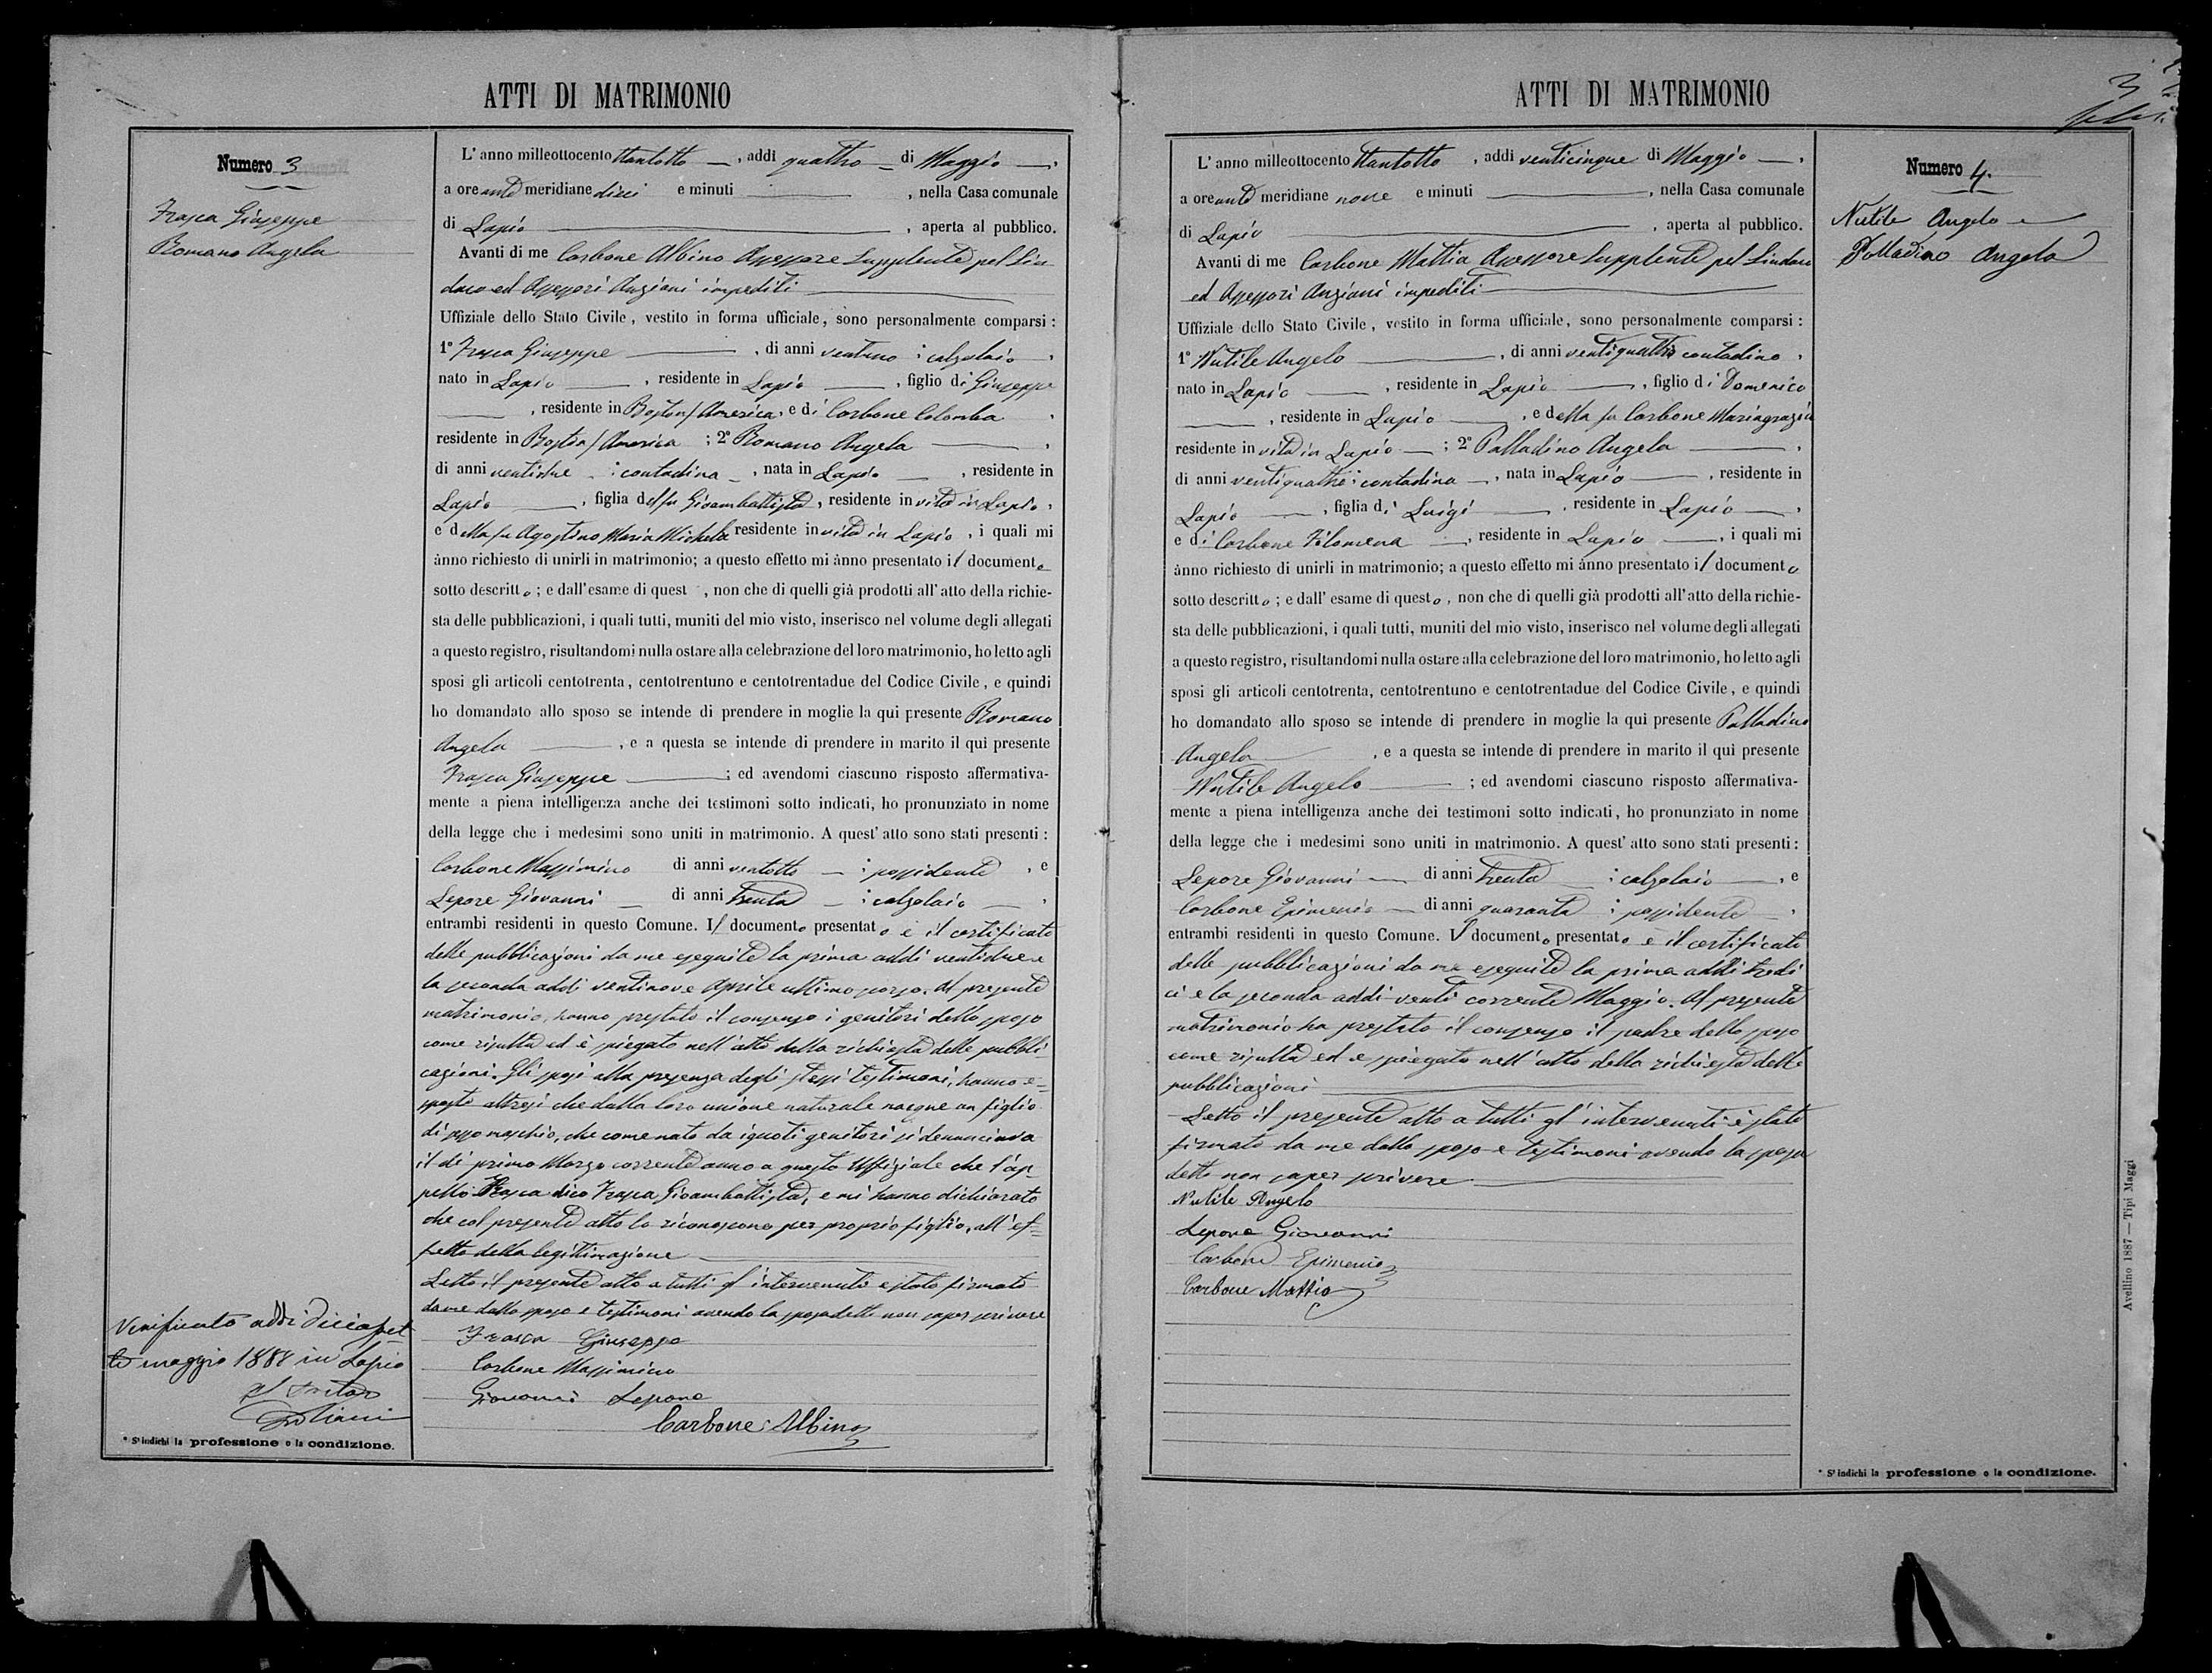 ATTI DI MATRIMONIO
Numero 3
Frasca Giuseppe
Romano Angela
L'anno milleottocento ttantotto, addi quattro di Maggio,
a ore anti meridiane dieci e minuti , nella Casa comunale
di Lapio , aperta al pubblico.
Avanti di me Carbone Albino Assessore Supplente pel Sin
daco ed Assessori Anziani impediti
Uffiziale dello Stato Civile, vestito in forma ufficiale, sono personalmente comparsi:
1° Frasca Giuseppe , di anni ventuno : calzolaio ,
nato in Lapio , residente in Lapio , figlio di Giuseppe
, residente in Boston/America, e di Carbone Colomba ,
residente in Boston/America ; 2° Romano Angela ,
di anni ventidue : contadina , nata in Lapio , residente in
Lapio , figlia del fu Gioambattista, residente in vita in Lapio,
e della fu Agostino Maria Michela residente in vita in Lapio , i quali mi
ànno richiesto di unirli in matrimonio; a questo effetto mi ànno presentato il documento
sotto descritto; e dall'esame di quest , non che di quelli già prodotti all'atto della richie-
sta delle pubblicazioni, i quali tutti, muniti del mio visto, inserisco nel volume degli allegati
a questo registro, risultandomi nulla ostare alla celebrazione del loro matrimonio, ho letto agli
sposi gli articoli centotrenta, centotrentuno e centotrentadue del Codice Civile, e quindi
ho domandato allo sposo se intende di prendere in moglie la qui presente Romano
Angela , e a questa se intende di prendere in marito il qui presente
Frasca Giuseppe ; ed avendomi ciascuno risposto affermativa-
mente a piena intelligenza anche dei testimoni sotto indicati, ho pronunziato in nome
della legge che i medesimi sono uniti in matrimonio. A quest'atto sono stati presenti:
Carbone Massimino di anni ventotto : possidente , e
Lepore Giovanni di anni trenta : calzolaio ,
entrambi residenti in questo Comune. Il documento presentato è il certificato
delle pubblicazioni da me eseguite la prima addi ventidue e
la seconda addi ventinove Aprile ultimo scorso. Al presente
matrimonio, hanno prestato il consenso i genitori dello sposo
come risulta ed è spiegato nell'atto della richiesta delle pubbli
cazioni. Gli sposi alla presenza degli stessi testimoni, hanno e=
sposto altresì che dalla loro unione naturale nacque un figlio
di sesso maschio, che come nato da ignoti genitori si denunciava
il dì primo Marzo corrente anno a questo Uffiziale che l'ap
pellò Frasca dico Frasca Gioambattista, e mi hanno dichiarato
che col presente atto lo riconoscono per proprio figlio, all'ef=
fetto della legittimazione
Letto il presente atto a tutti gl'intervenuti è stato firmato
da me dallo sposo e testimoni avendo la sposa detto non saper scrivere
Frasca Giuseppe
Carbone Massimino
Giovanni Lepore
Carbone Albino
Verificato addi diciaset
te maggio 1888 in Lapio
Il Pretore
* Si indichi la professione o la condizione.
ATTI DI MATRIMONIO
3
Numero 4.
Nutile Angelo e
Palladino Angela
L'anno milleottocento ttantotto , addi venticinque di Maggio ,
a ore anti meridiane nove e minuti , nella Casa comunale
di Lapio , aperta al pubblico.
Avanti di me Carbone Mattia Assessore Supplente pel Sindaco
ed Assessori Anziani impediti
Uffiziale dello Stato Civile, vestito in forma ufficiale, sono personalmente comparsi:
1° Nutile Angelo , di anni ventiquattro contadino ,
nato in Lapio , residente in Lapio , figlio di Domenico
, residente in Lapio , e della fu Carbone Mariagrazia
residente in vita in Lapio ; 2° Palladino Angela ,
di anni ventiquattro : contadina , nata in Lapio , residente in
Lapio , figlia di Luigi , residente in Lapio ,
e di Carbone Filomena , residente in Lapio , i quali mi
ànno richiesto di unirli in matrimonio; a questo effetto mi ànno presentato il documento
sotto descritto; e dall'esame di questo, non che di quelli già prodotti all'atto della richie-
sta delle pubblicazioni, i quali tutti, muniti del mio visto, inserisco nel volume degli allegati
a questo registro, risultandomi nulla ostare alla celebrazione del loro matrimonio, ho letto agli
sposi gli articoli centotrenta, centotrentuno e centotrentadue del Codice Civile, e quindi
ho domandato allo sposo se intende di prendere in moglie la qui presente Palladino
Angela , e a questa se intende di prendere in marito il qui presente
Nutile Angelo ; ed avendomi ciascuno risposto affermativa-
mente a piena intelligenza anche dei testimoni sotto indicati, ho pronunziato in nome
della legge che i medesimi sono uniti in matrimonio. A quest'atto sono stati presenti:
Lepore Giovanni di anni trenta : calzolaio , e
Carbone Epimenio di anni quaranta : possidente ,
entrambi residenti in questo Comune. Il documento presentato è il certificato
delle pubblicazioni da me eseguite la prima addi tredi
ci e la seconda addi venti corrente Maggio. Al presente
matrimonio ha prestato il consenso il padre dello sposo
come risulta ed è spiegato nell'atto della richiesta delle
pubblicazioni
Letto il presente atto a tutti gl'intervenuti è stato
firmato da me dallo sposo e testimoni avendo la sposa
detto non saper scrivere
Nutile Angelo
Lepore Giovanni
Carbone Epimenio
Carbone Mattia
* Si indichi la professione o la condizione.
Avellino 1887 — Tipi Maggi